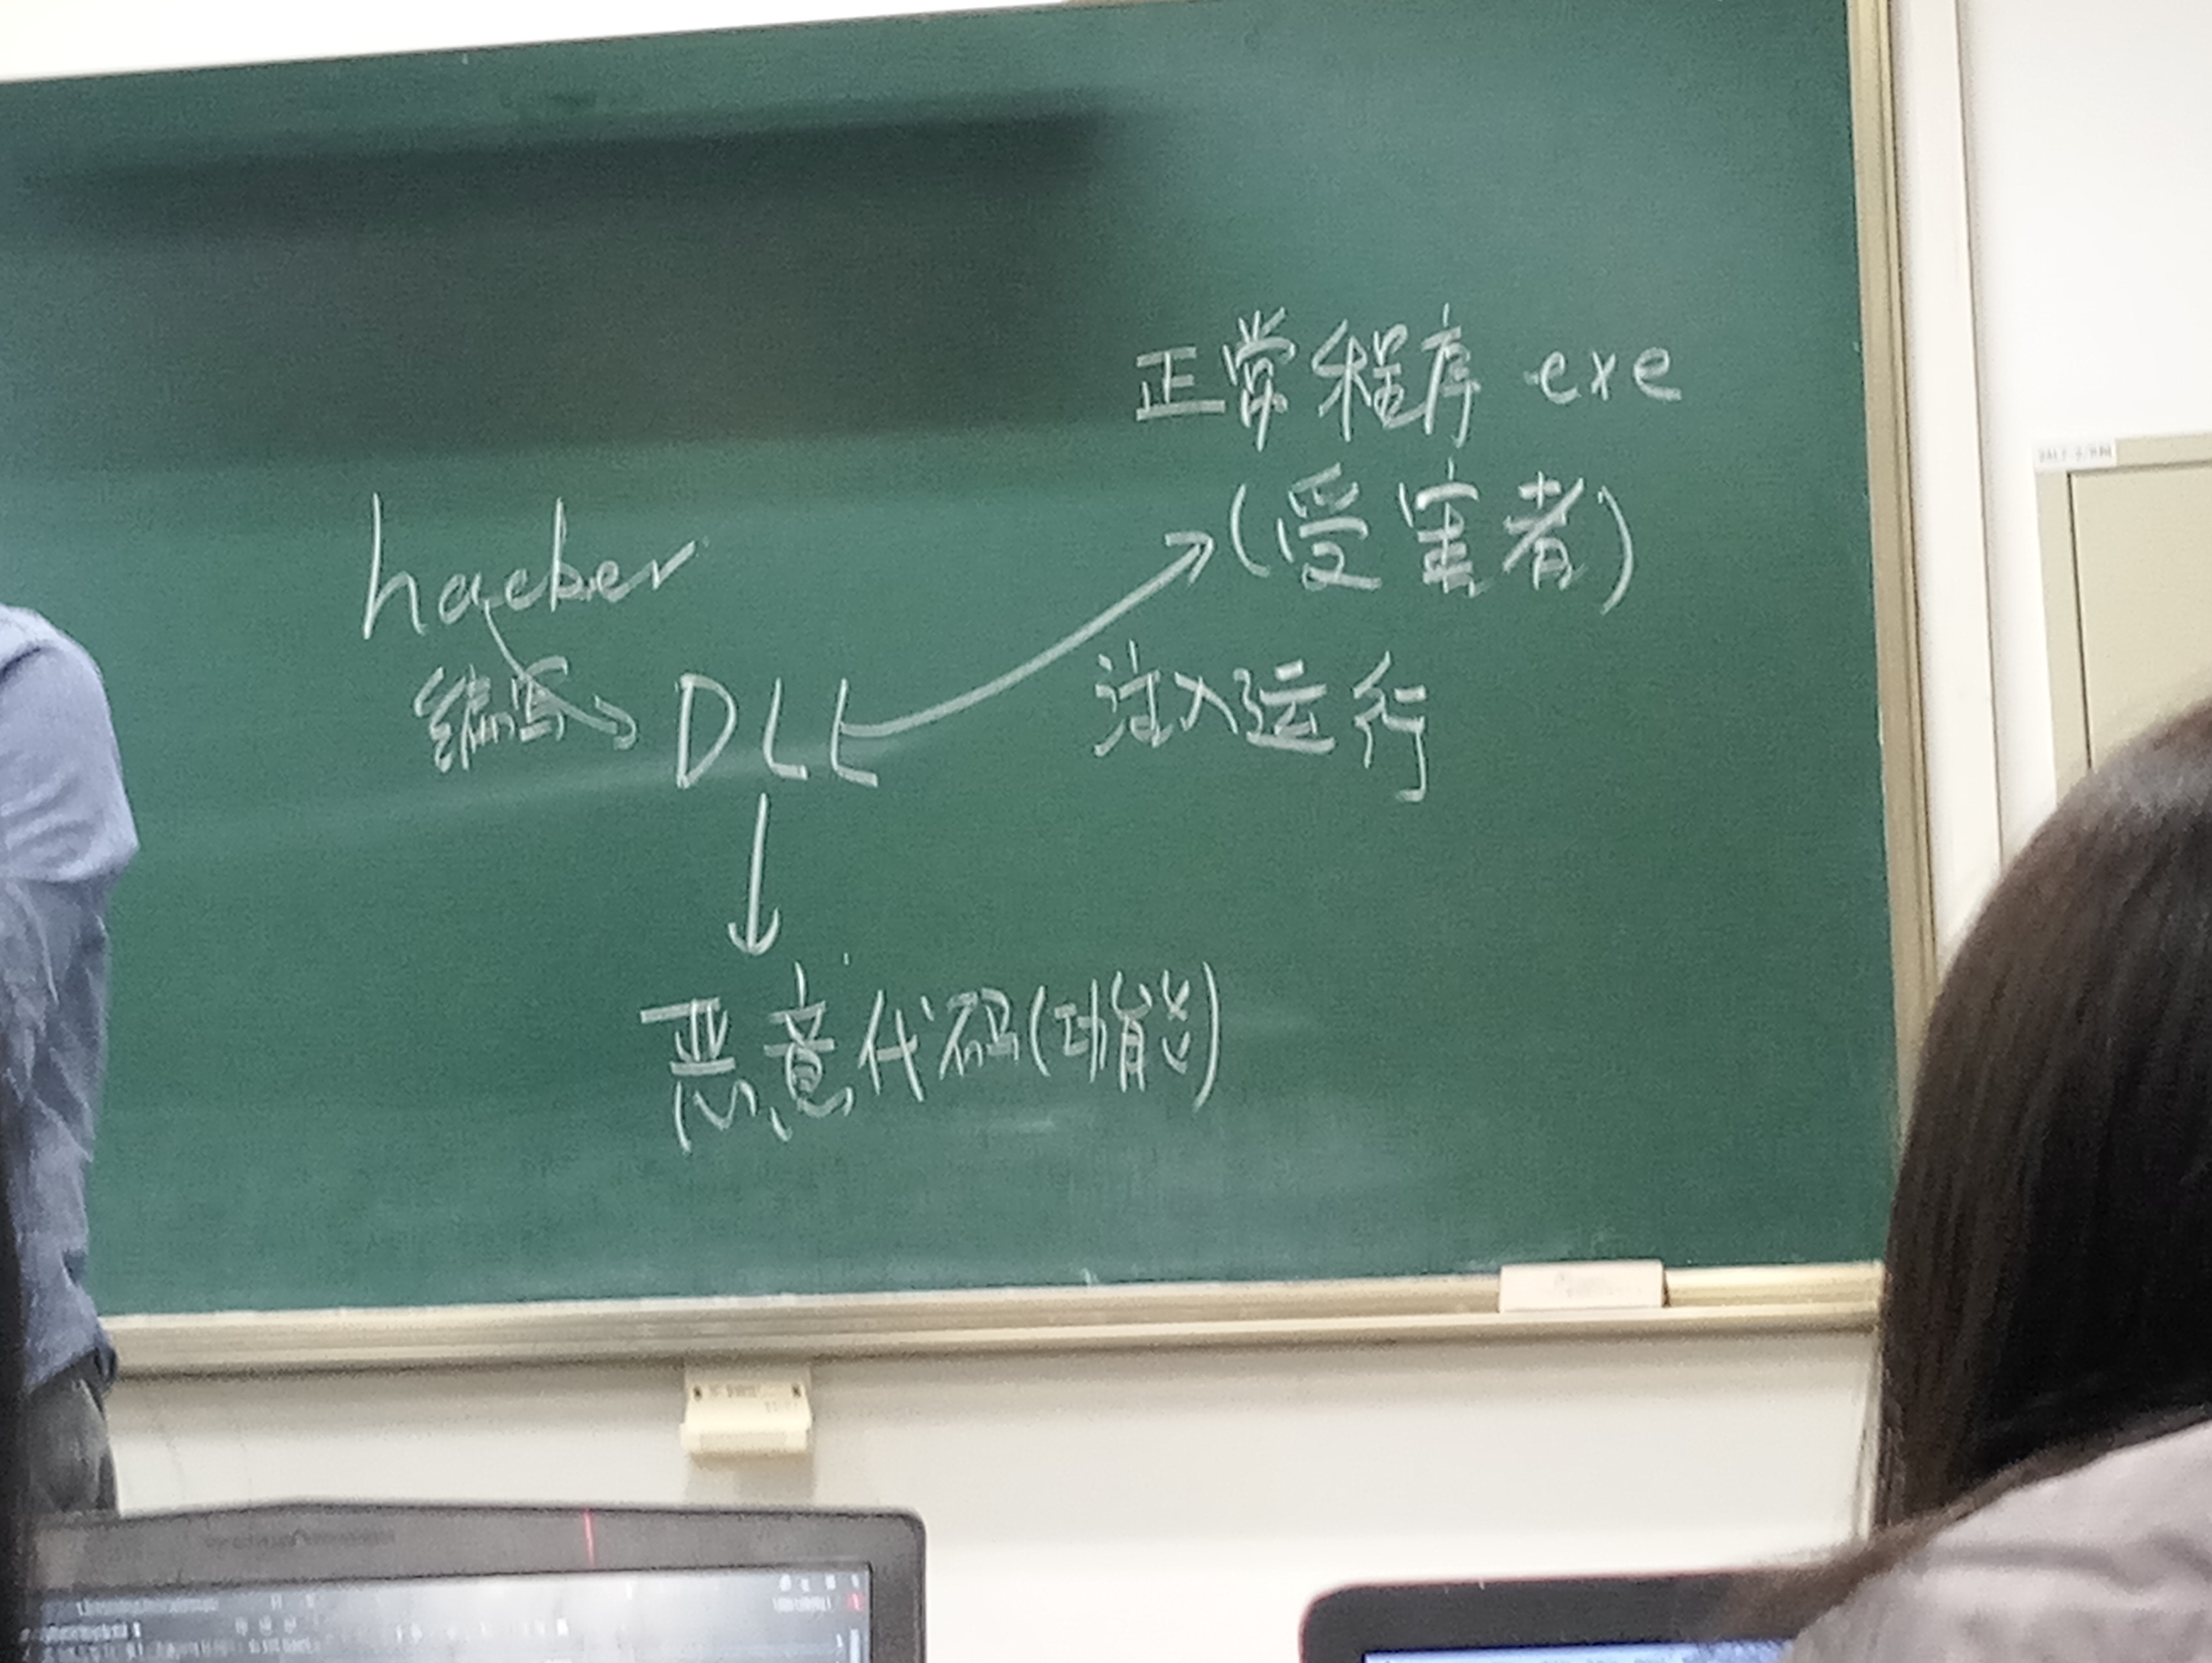 正常程序 exe
(受害者)
hacker
编写
DLL
注入运行
恶意代码(功能)